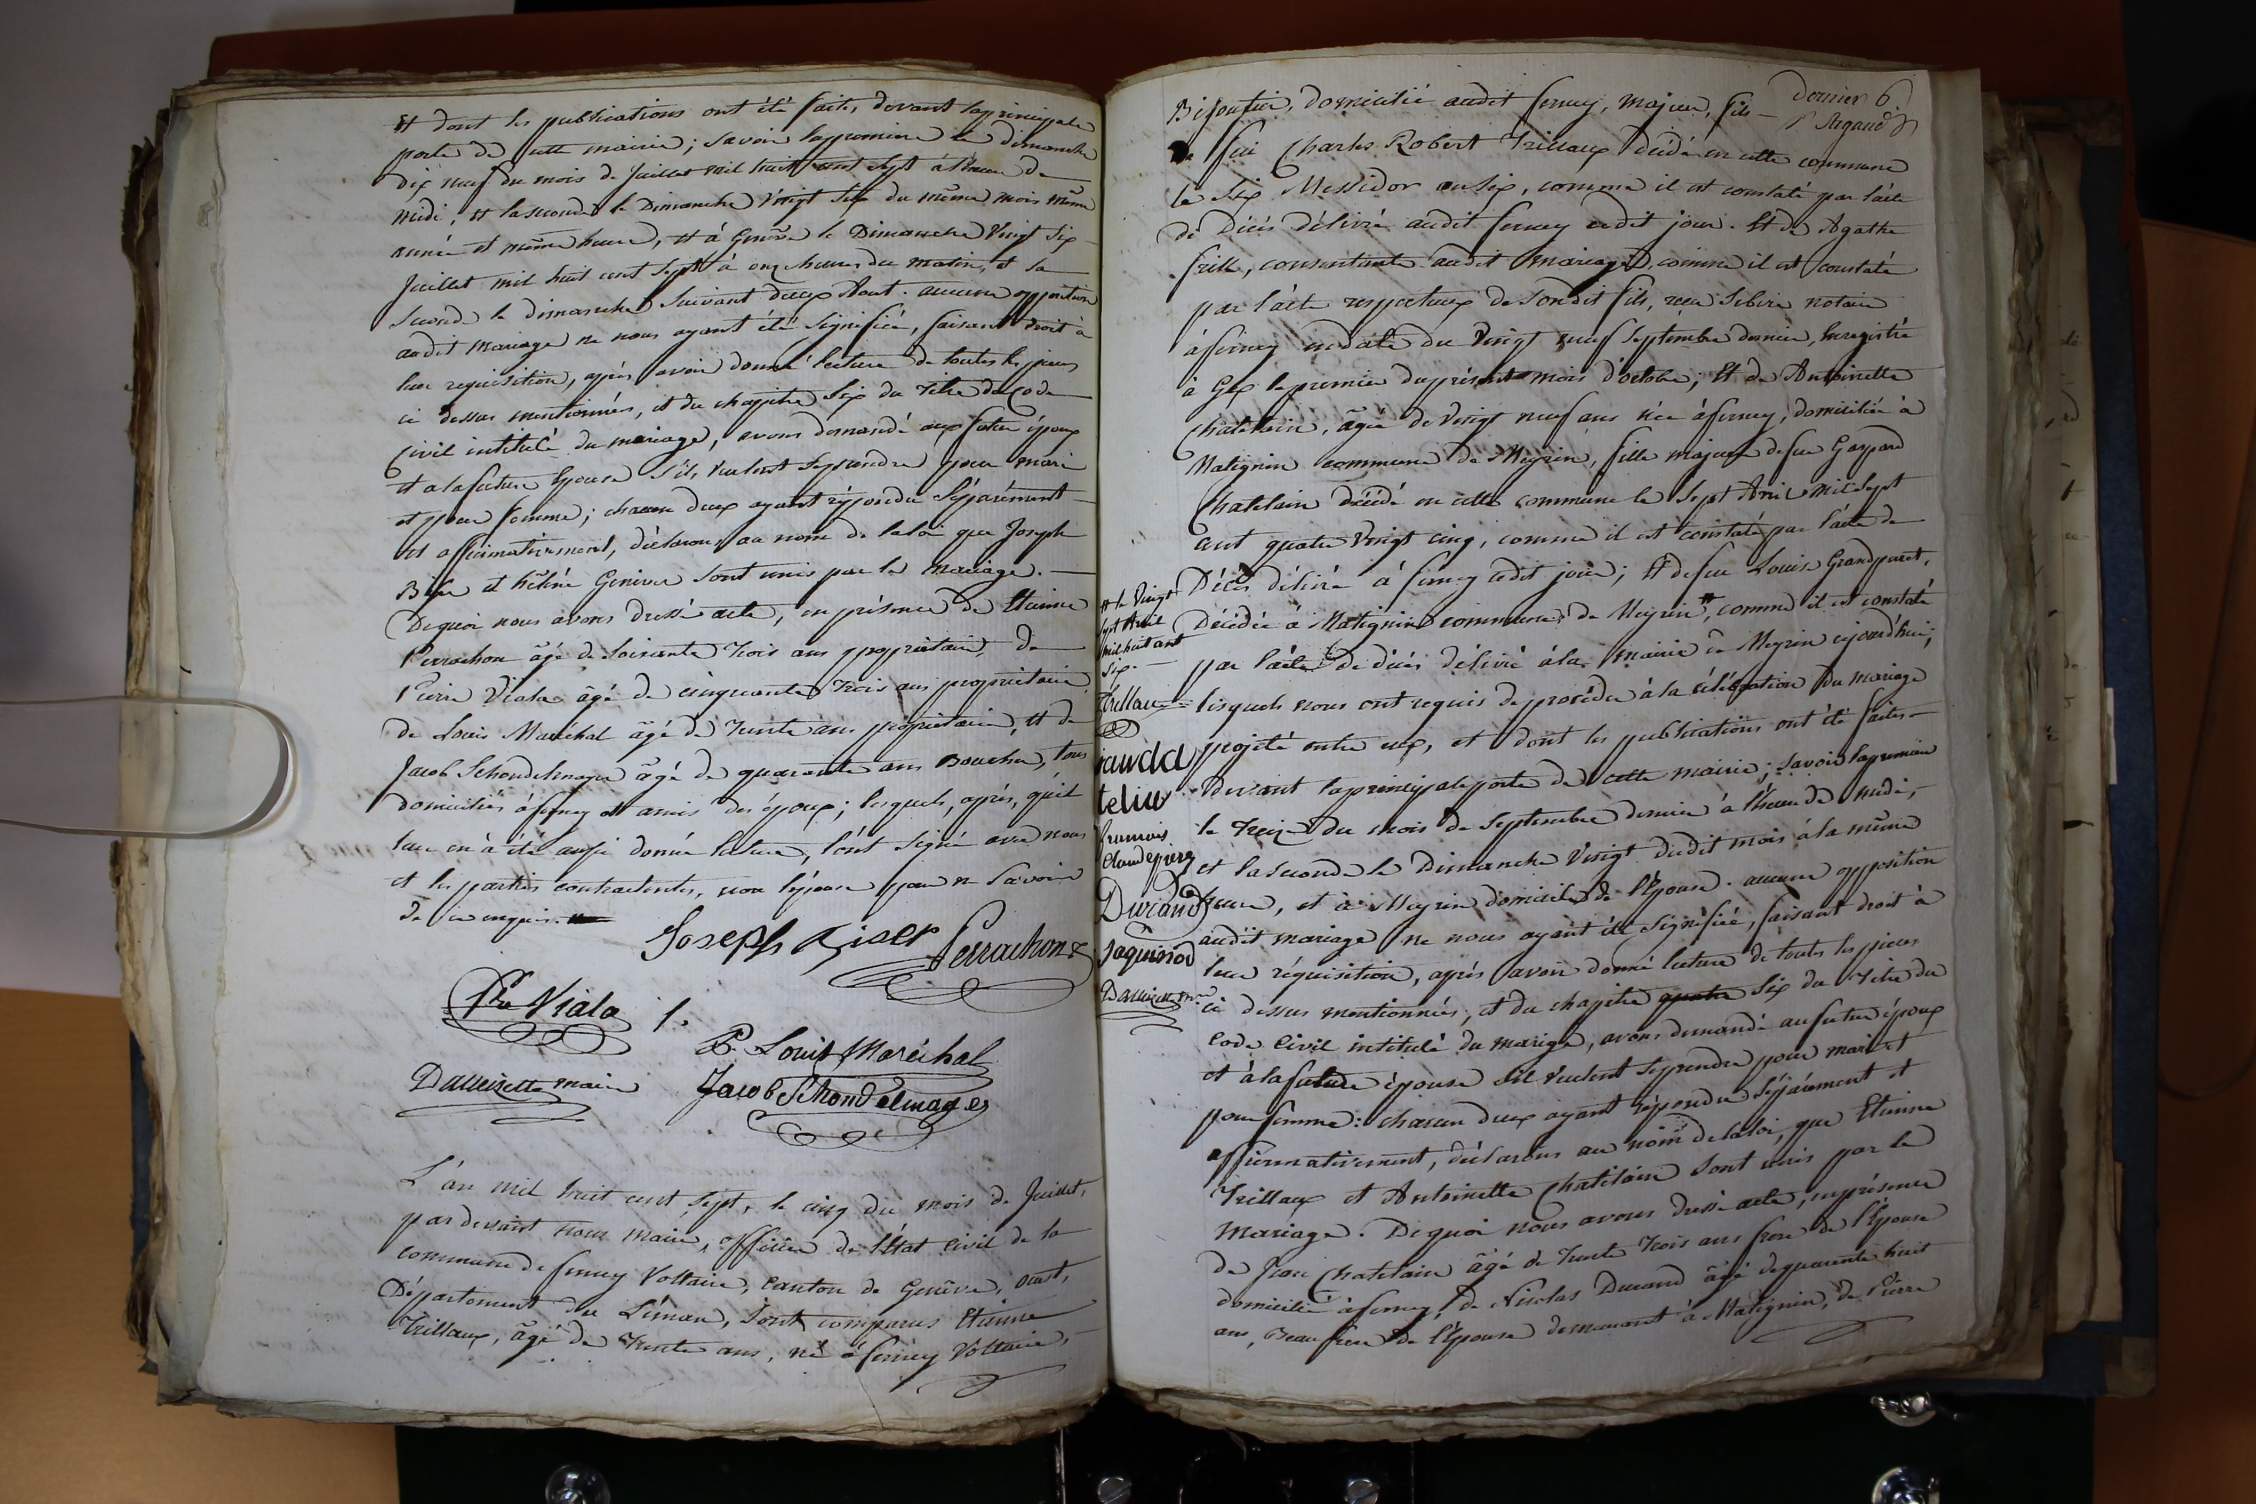 Et dont les publications ont été faites devant la principale
porte de cette mairie; savoir la premiere le dimanche
Dix neuf du mois de Juillet mil huit cent sept à l'heure de
Midi; et la seconde le Dimanche Vingt Six du même mois même
année et même heure, et à Genêve le Dimanche Vingt Six
Juillet mil huit cent sept à onze heures du matin, et la
seconde le dimanche suivant deux Aout. aucune opposition
audit Mariage ne nous ayant été signifiée, faisant droit à
leur requisition, après avoir donné lecture de toutes les pieces
ci dessus mentionnées, et du chapitre Six du titre du Code
Civil intitulé du mariage, avons demandé aux futur époux
et a la future Epouse s'ils veulent se prendre pour mari
et pour femme; chacun deux ayant répondu Séparément
et affirmativement, déclarons au nom de la loi que Joseph
et héléne Geniver sont unis par le Mariage.
Dequoi nous avons dressé acte, en présence de Etienne
Perrachon âgé de soixante trois ans propriétaire, de
Pierre Viala âgé de cinquante trois ans propriétaire
de Louis Maréchal âgé de trente ans propriétaire, et de
Jacob Schondelmayer âgé de quarante ans Boucher, tous
domiciliés à ferney et amis des époux; lesquels, après, qu'il
leur en à été aussi donné lecture, l'ont signé avec nous
et les parties contractantes, non l'épouse pour ne savoir
de ce enquis.
Joseph Perrachon
Pre Viala
P. Louis Maréchal
Dauvizette maire Jacob Schondelmayer
L'an mil huit cent sept, le cinq du mois de Juillet,
pardevant nous Maire, officier de l'État civil de la
commune de ferney Voltaire, canton de Genêve, ouest,
Département du Léman, sont comparus Etienne
Trillaux, âgé de trente ans, né à ferney Voltaire,
dernier 6.
Rigaud
Bijoutier, domicilié audit ferney, majeur, fils
de feu Charles Robert Trillaux décédé en cette commune
le Six Messidor an Six, comme il est constaté par l'acte
de Décés délivré audit ferney cedit jour. Et de Agathe
frille, consentante audit mariage, comme il est constaté
par l'acte respectueux de sondit fils, reçu notaire
à ferney en date du Vingt neuf Septembre dernier, Enregistré
à Gex le premier du présent mois d'octobre; Et de Antoinette
Chatelain, âgée de Vingt neuf ans née à ferney, domiciliée à
Matignin commune de Meyrin, fille majeure de feu Gaspard
Chatelain décédé en cette commune le Sept Avril mil sept
cent quatre Vingt cinq, comme il est constaté par l'acte de
Décés délivré à ferney cedit jour; Et de feue Louise Grandpuret,
Décédée à Matignin commune de Meyrin #, comme il est constaté
par l'acte de décés délivré à la mairie de Meyrin cejourd'hui;
lesquels nous ont requis de procéder à la célébration du mariage
projeté entre eux, et dont les publications ont été faites
Devant la principale porte de cette mairie; savoir la premiere
le treize du mois de Septembre dernier à l'heure de midi,
et la seconde le Dimanche Vingt dudit mois à la même
heure, et à Meyrin domicile de l'Epouse. aucune opposition
audit mariage ne nous ayant été signifiée, faisant droit à
leur réquisition, après avoir donné lecture de toutes les pieces
ci dessus mentionnées, et du chapitre quatre Six du titre du
Code Civil intitulé du mariage, avons demandé au futur époux
et à la future épouse s'il veulent se prendre pour mari et
pour femme: chacun deux ayant répondu séparément et
affirmativement, déclarons au nom de la loi, que Etienne
Trillaux et Antoinette Chatelain sont unis par le
Mariage. Dequoi nous avons dressé acte, en présence
de Jean Chatelain âgé de trente trois ans frere de l'Epouse
domicilié à ferney, de Nicolas Durand âgé de quarante huit
ans, Beau frere de l'Epouse demeurant à Matignin, de Pierre
# le Vingt
sept Avril
mil huit cent
Six.
Trillaux
francois
Claudepiere
Durand
Jaquinod
Dauvizette mre